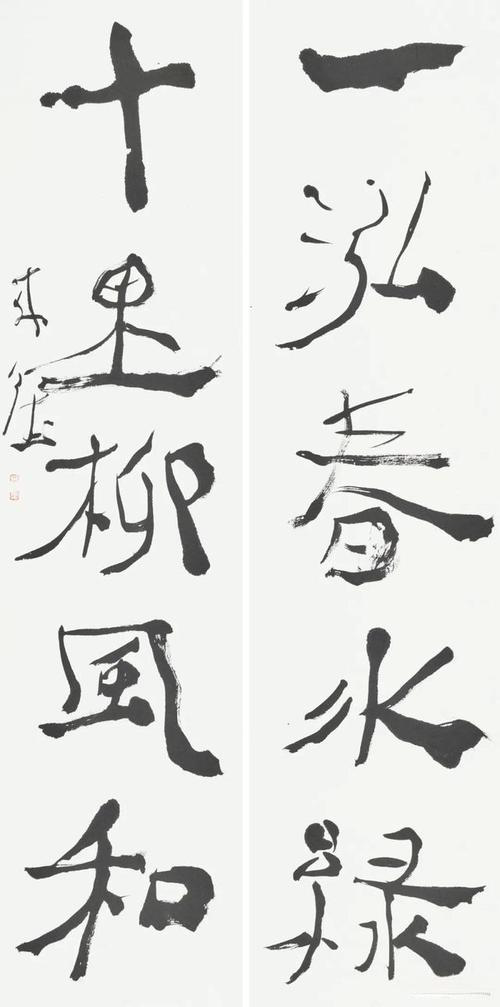 一泓春水綠
十里柳風和